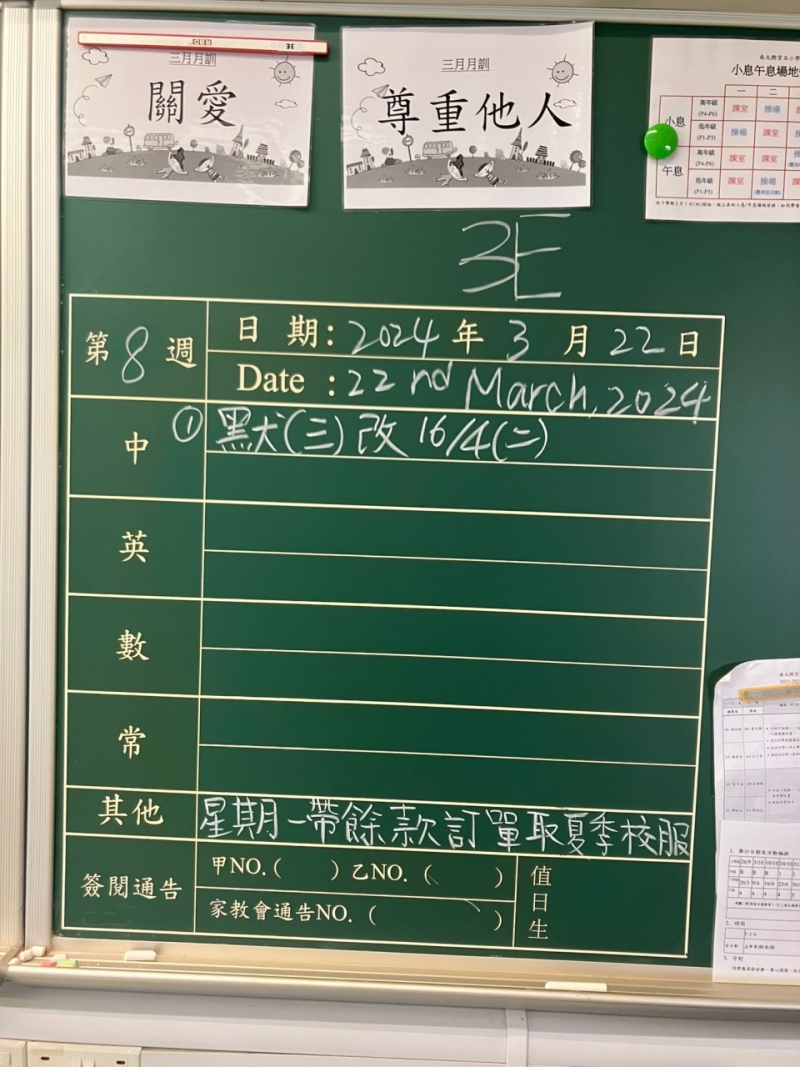 三月月訓
關愛
三月月訓
尊重他人
小息午息場地
一 二
小息
高年級 (P4-P6) 課室 操場
低年級 (P1-P3) 操場 課室
午息
高年級 (P4-P6) 課室 課室
低年級 (P1-P3) 課室 操場
3E
第 8 週
日 期: 2024 年 3 月 22 日
Date : 22nd March, 2024
中 ① 默犬(三)改 16/4(二)
英
數
常
其他 星期一帶餘款訂單取夏季校服
簽閱通告
甲NO.( ) 乙NO.( )
家教會通告NO.( )
值日生